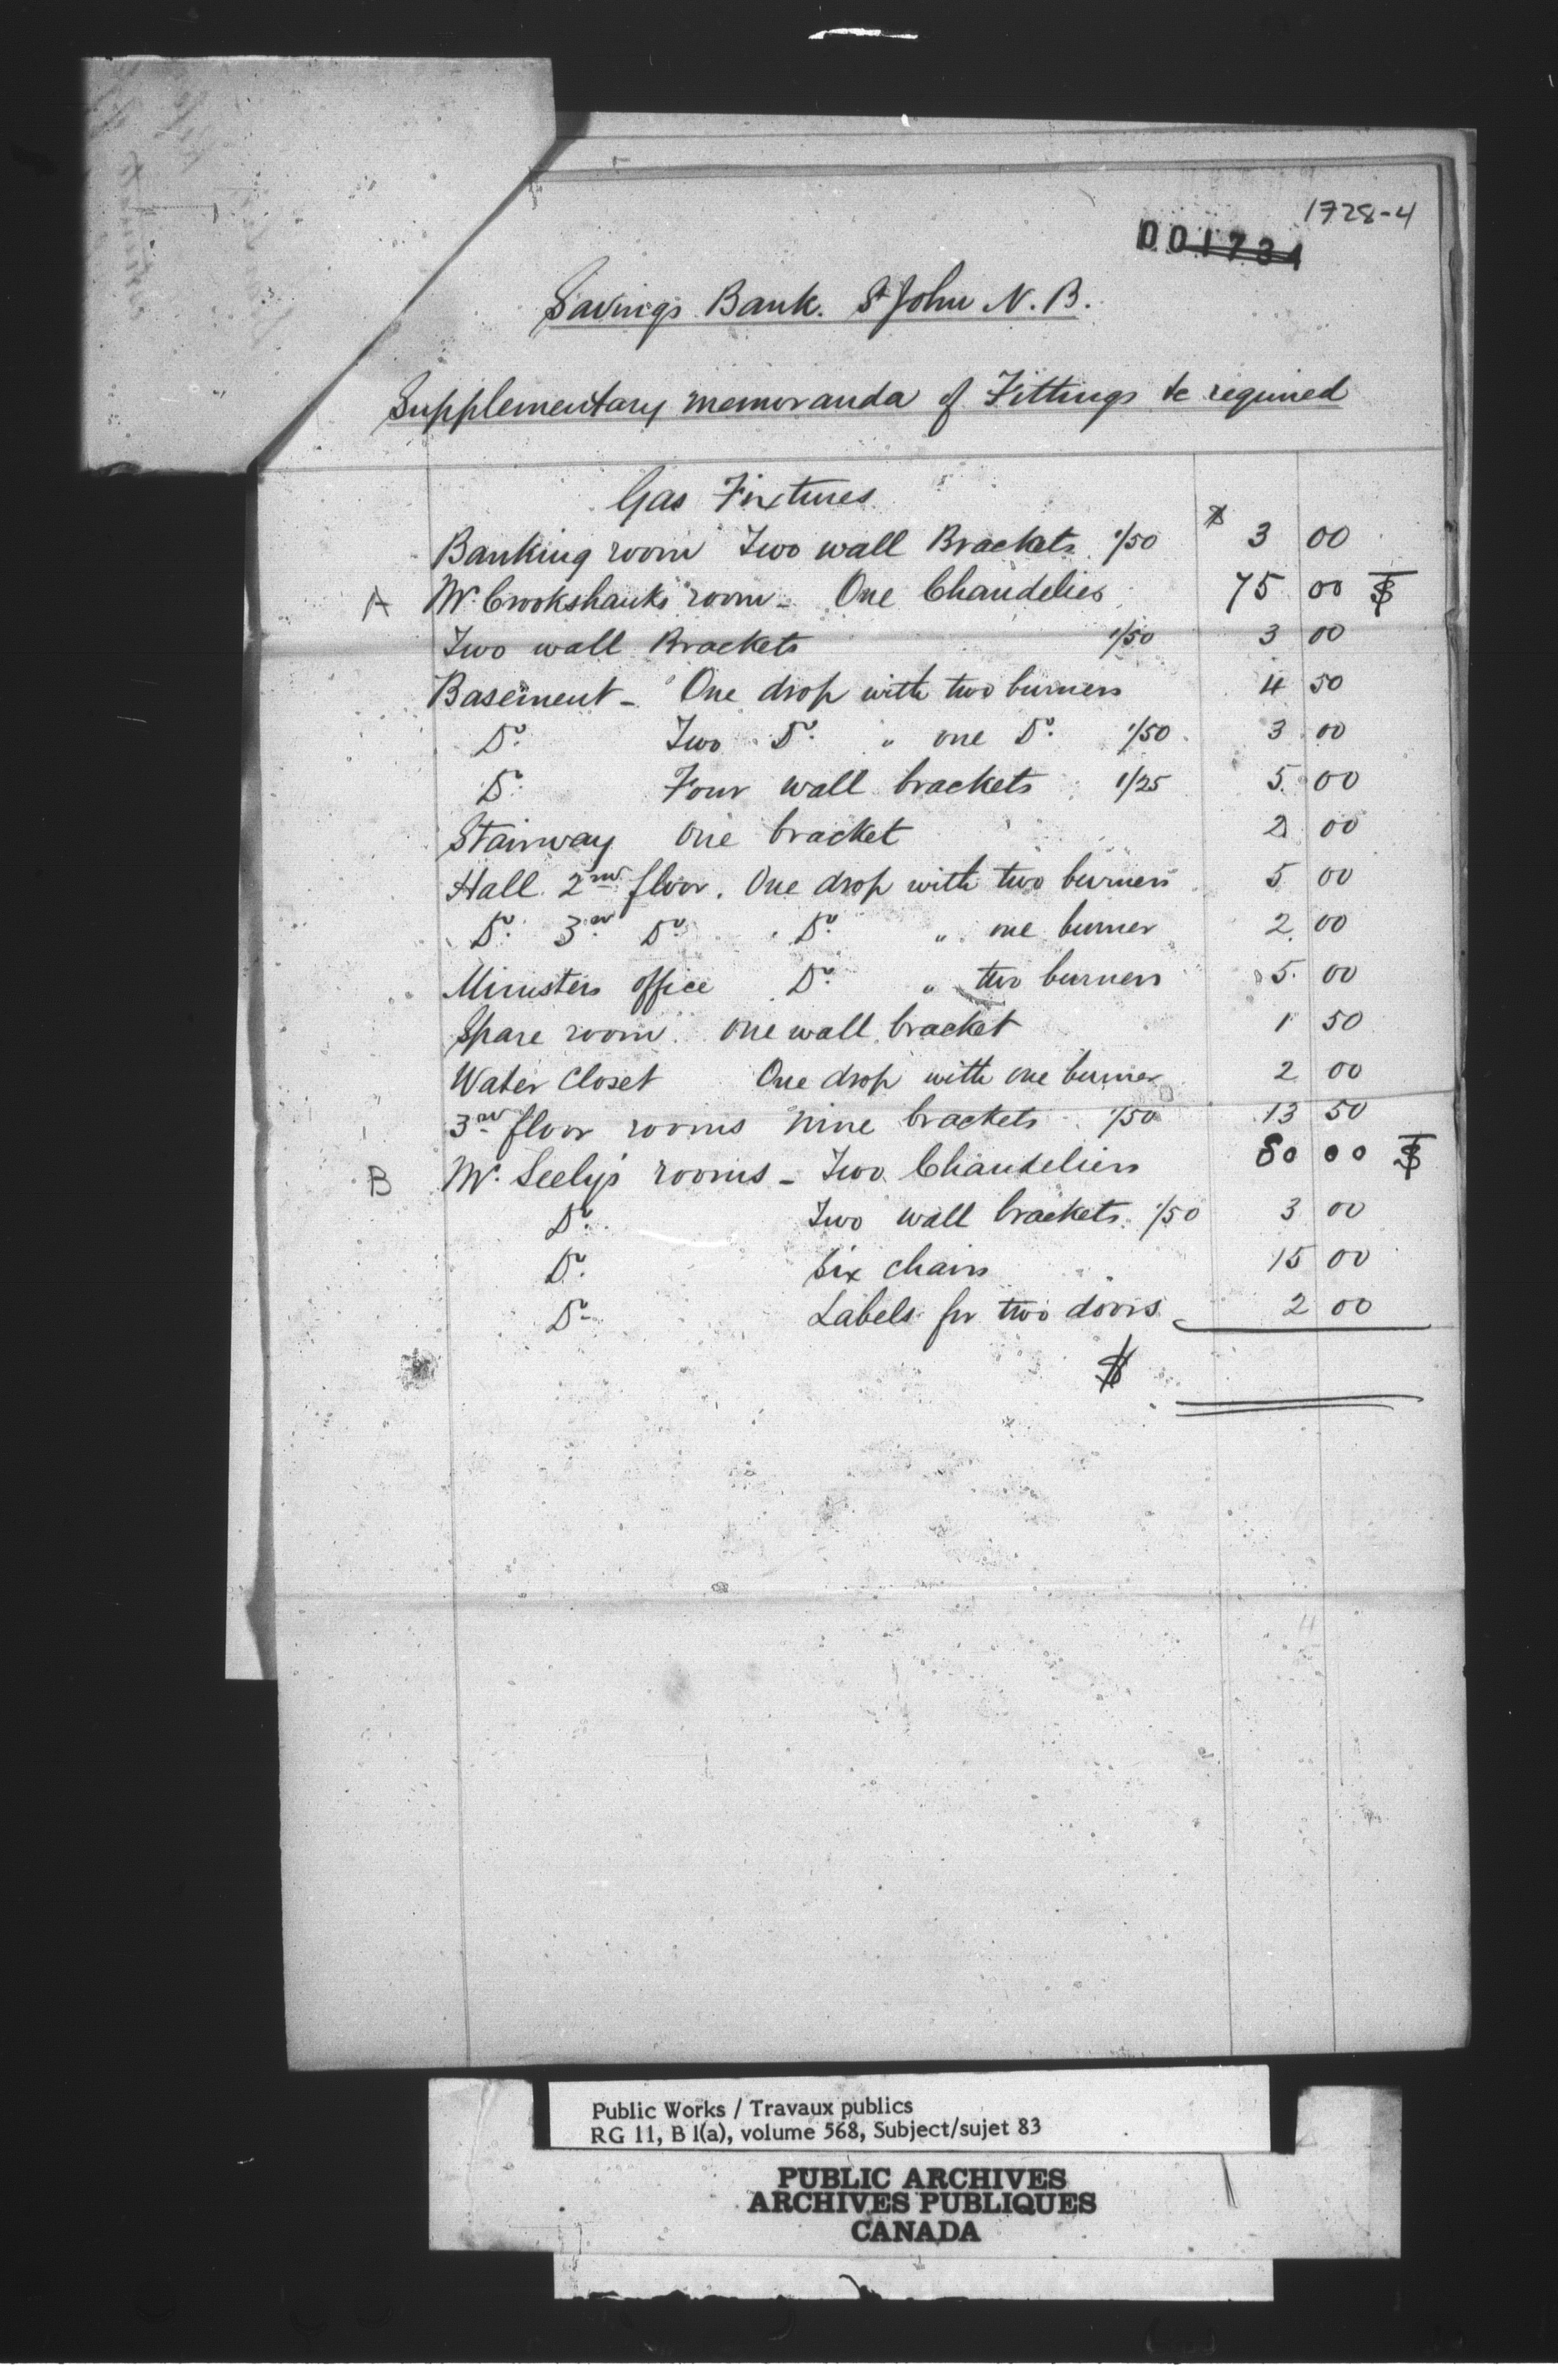 1728-4
001734
Savings Bank. St John N. B.
Supplementary memoranda of Fittings &c required
Gas Fixtures
Banking room Two wall Brackets 1/50 $ 3 00
A Mr. Crookshanks room - One Chandelier 75 00 $
Two wall Brackets 1/50 3 00
Basement - One drop with two burners 4 50
Do. Two Do. " one Do. 1/50 3 00
Do. Four wall brackets 1/25 5 00
Stairway One bracket 2 00
Hall 2nd floor. One drop with two burners 5 00
Do. 3rd Do. Do. " one burner 2 00
Ministers office Do. " two burners 5 00
Spare room. One wall bracket 1 50
Water Closet One drop with one burner 2 00
3rd floor rooms nine brackets 1/50 13 50
B Mr. Seely's rooms - Two Chandeliers 80 00 $
Do. Two wall brackets. 1/50 3 00
Do. Six chairs 15 00
Do. Labels for two doors 2 00
$
Public Works / Travaux publics
RG 11, B 1(a), volume 568, Subject/sujet 83
PUBLIC ARCHIVES
ARCHIVES PUBLIQUES
CANADA